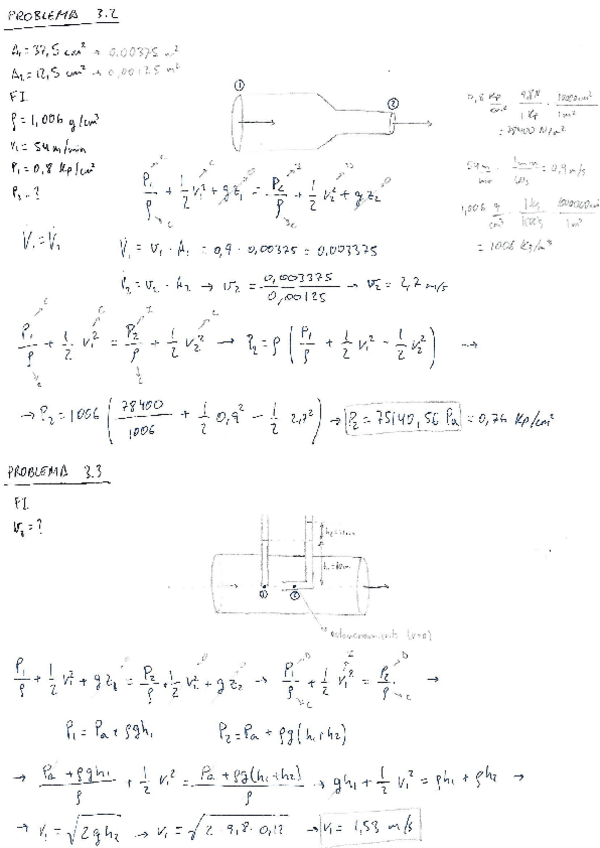 PROBLEMA 3.2
A₁ = 37,5 cm² → 0.00375 m²
A₂ = 12,5 cm² → 0,00125 m²
FI
ρ = 1,006 g/cm³
v₁ = 54 m/min
P₁ = 0,8 Kp/cm²
P₂ = ?
① ②
0,8 Kp/cm² · 9,8 N/1 Kp · 10000 cm²/1 m² = 78400 N/m²
= 0,9 m/s
1,006 g/cm³ · = 1006 Kg/m³
P₁/ρ + 1/2 v₁² + g z₁ = P₂/ρ + 1/2 v₂² + g z₂
V̇₁ = V̇₂
V̇₁ = v₁ · A₁ = 0,9 · 0,00375 = 0,003375
= v₂ · A₂ → v₂ = 0,003375/0,00125 → v₂ = 2,7 m/s
P₁/ρ + 1/2 v₁² = P₂/ρ + 1/2 v₂² → P₂ = ρ ( P₁/ρ + 1/2 v₁² - 1/2 v₂² ) →
→ P₂ = 1006 ( 78400/1006 + 1/2 0,9² - 1/2 2,7² ) → P₂ = 75140,56 Pa = 0,76 Kp/cm²
PROBLEMA 3.3
FI
= ?
① ②
(v=0)
P₁/ρ + 1/2 v₁² + g z₁ = P₂/ρ + 1/2 v₂² + g z₂ → P₁/ρ + 1/2 v₁² = P₂/ρ →
P₁ = Pa + ρgh₁ P₂ = Pa + ρg(h₁+h₂)
→ Pa + ρgh₁/ρ + 1/2 v₁² = Pa + ρg(h₁+h₂)/ρ → gh₁ + 1/2 v₁² = gh₁ + gh₂ →
→ v₁ = √2gh₂ → v₁ = √2 · 9,8 · 0,12 → v₁ = 1,53 m/s